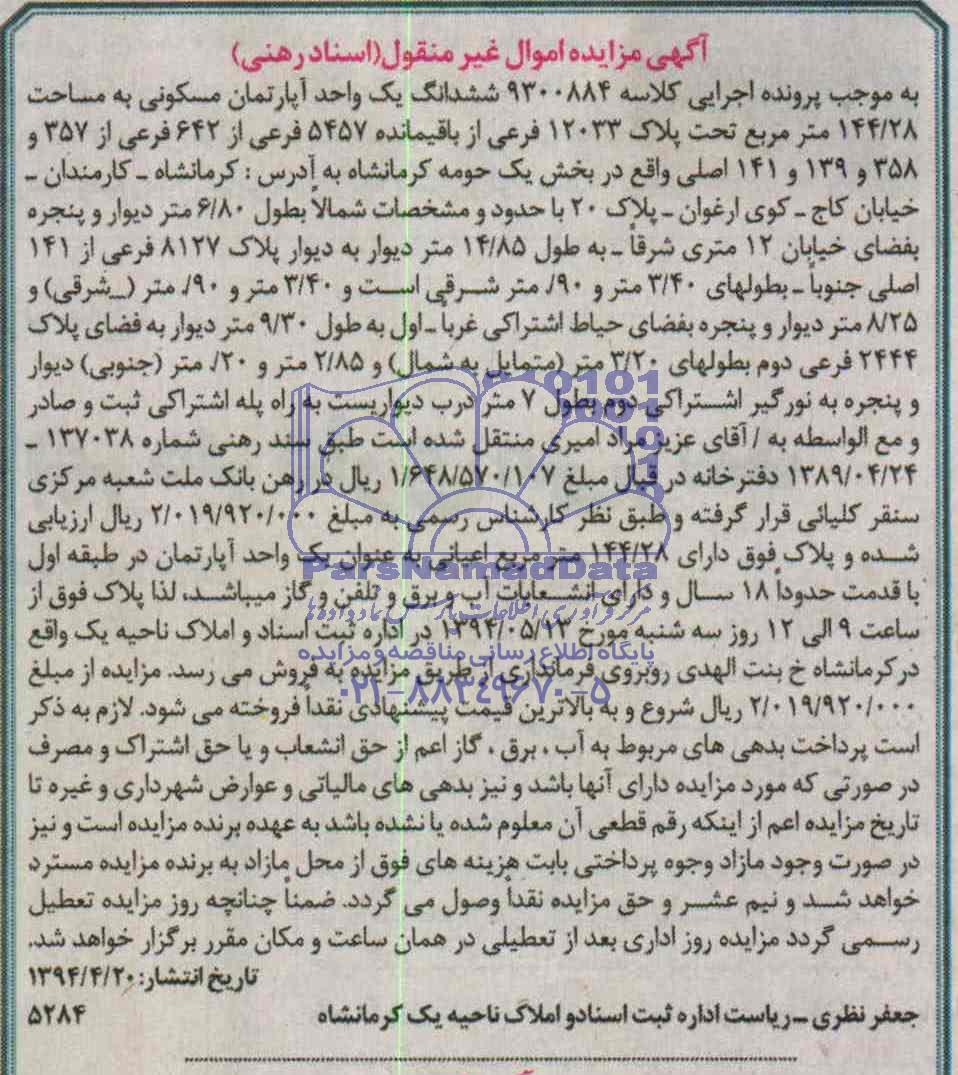 آگهی مزایده اموال غیر منقول(اسناد رهنی)
به موجب پرونده اجرایی کلاسه ۹۳۰۰۸۸۴ ششدانگ یک واحد آپارتمان مسکونی به مساحت
۱۴۴/۲۸ متر مربع تحت پلاک ۱۲۰۳۳ فرعی از باقیمانده ۵۴۵۷ فرعی از ۶۴۲ فرعی از ۳۵۷ و
۳۵۸ و ۱۳۹ و ۱۴۱ اصلی واقع در بخش یک حومه کرمانشاه به آدرس : کرمانشاه ـ کارمندان ـ
خیابان کاج ـ کوی ارغوان ـ پلاک ۲۰ با حدود و مشخصات شمالاً بطول ۶/۸۰ متر دیوار و پنجره
بفضای خیابان ۱۲ متری شرقاً ـ به طول ۱۴/۸۵ متر دیوار به دیوار پلاک ۸۱۲۷ فرعی از ۱۴۱
اصلی جنوباً ـ بطولهای ۳/۴۰ متر و ۹۰/. متر شرقی است و ۳/۴۰ متر و ۹۰/. متر (ـ شرقی) و
۸/۲۵ متر دیوار و پنجره بفضای حیاط اشتراکی غرباً ـ اول به طول ۹/۳۰ متر دیوار به فضای پلاک
۲۴۴۴ فرعی دوم بطولهای ۳/۲۰ متر (متمایل به شمال) و ۲/۸۵ متر و ۲۰/. متر (جنوبی) دیوار
و پنجره به نورگیر اشتراکی دوم بطول ۷ متر درب دیواریست به راه پله اشتراکی ثبت و صادر
و مع الواسطه به / آقای عزیز مراد امیری منتقل شده است طبق سند رهنی شماره ۱۳۷۰۳۸ ـ
۱۳۸۹/۰۴/۲۴ دفترخانه در قبال مبلغ ۱/۶۴۸/۵۷۰/۱۰۷ ریال در رهن بانک ملت شعبه مرکزی
سنقر کلیائی قرار گرفته و طبق نظر کارشناس رسمی به مبلغ ۲/۰۱۹/۹۲۰/۰۰۰ ریال ارزیابی
شده و پلاک فوق دارای ۱۴۴/۲۸ متر مربع اعیانی به عنوان یک واحد آپارتمان در طبقه اول
با قدمت حدوداً ۱۸ سال و دارای انشعابات آب و برق و تلفن و گاز میباشد، لذا پلاک فوق از
ساعت ۹ الی ۱۲ روز سه شنبه مورخ ۱۳۹۴/۰۵/۱۳ در اداره ثبت اسناد و املاک ناحیه یک واقع
درکرمانشاه خ بنت الهدی روبروی فرمانداری از طریق مزایده به فروش می رسد. مزایده از مبلغ
۲/۰۱۹/۹۲۰/۰۰۰ ریال شروع و به بالاترین قیمت پیشنهادی نقداً فروخته می شود. لازم به ذکر
است پرداخت بدهی های مربوط به آب ، برق ، گاز اعم از حق انشعاب و یا حق اشتراک و مصرف
در صورتی که مورد مزایده دارای آنها باشد و نیز بدهی های مالیاتی و عوارض شهرداری و غیره تا
تاریخ مزایده اعم از اینکه رقم قطعی آن معلوم شده یا نشده باشد به عهده برنده مزایده است و نیز
در صورت وجود مازاد وجوه پرداختی بابت هزینه های فوق از محل مازاد به برنده مزایده مسترد
خواهد شد و نیم عشر و حق مزایده نقداً وصول می گردد. ضمناً چنانچه روز مزایده تعطیل
رسمی گردد مزایده روز اداری بعد از تعطیلی در همان ساعت و مکان مقرر برگزار خواهد شد.
تاریخ انتشار: ۱۳۹۴/۴/۲۰
جعفر نظری ـ ریاست اداره ثبت اسنادو املاک ناحیه یک کرمانشاه
۵۲۸۴
ParsNamadData
مرکز فرآوری اطلاعات پارس نماد داده ها
پایگاه اطلاع رسانی مناقصه و مزایده
۰۲۱-۸۸۳۴۹۶۷۰-۵